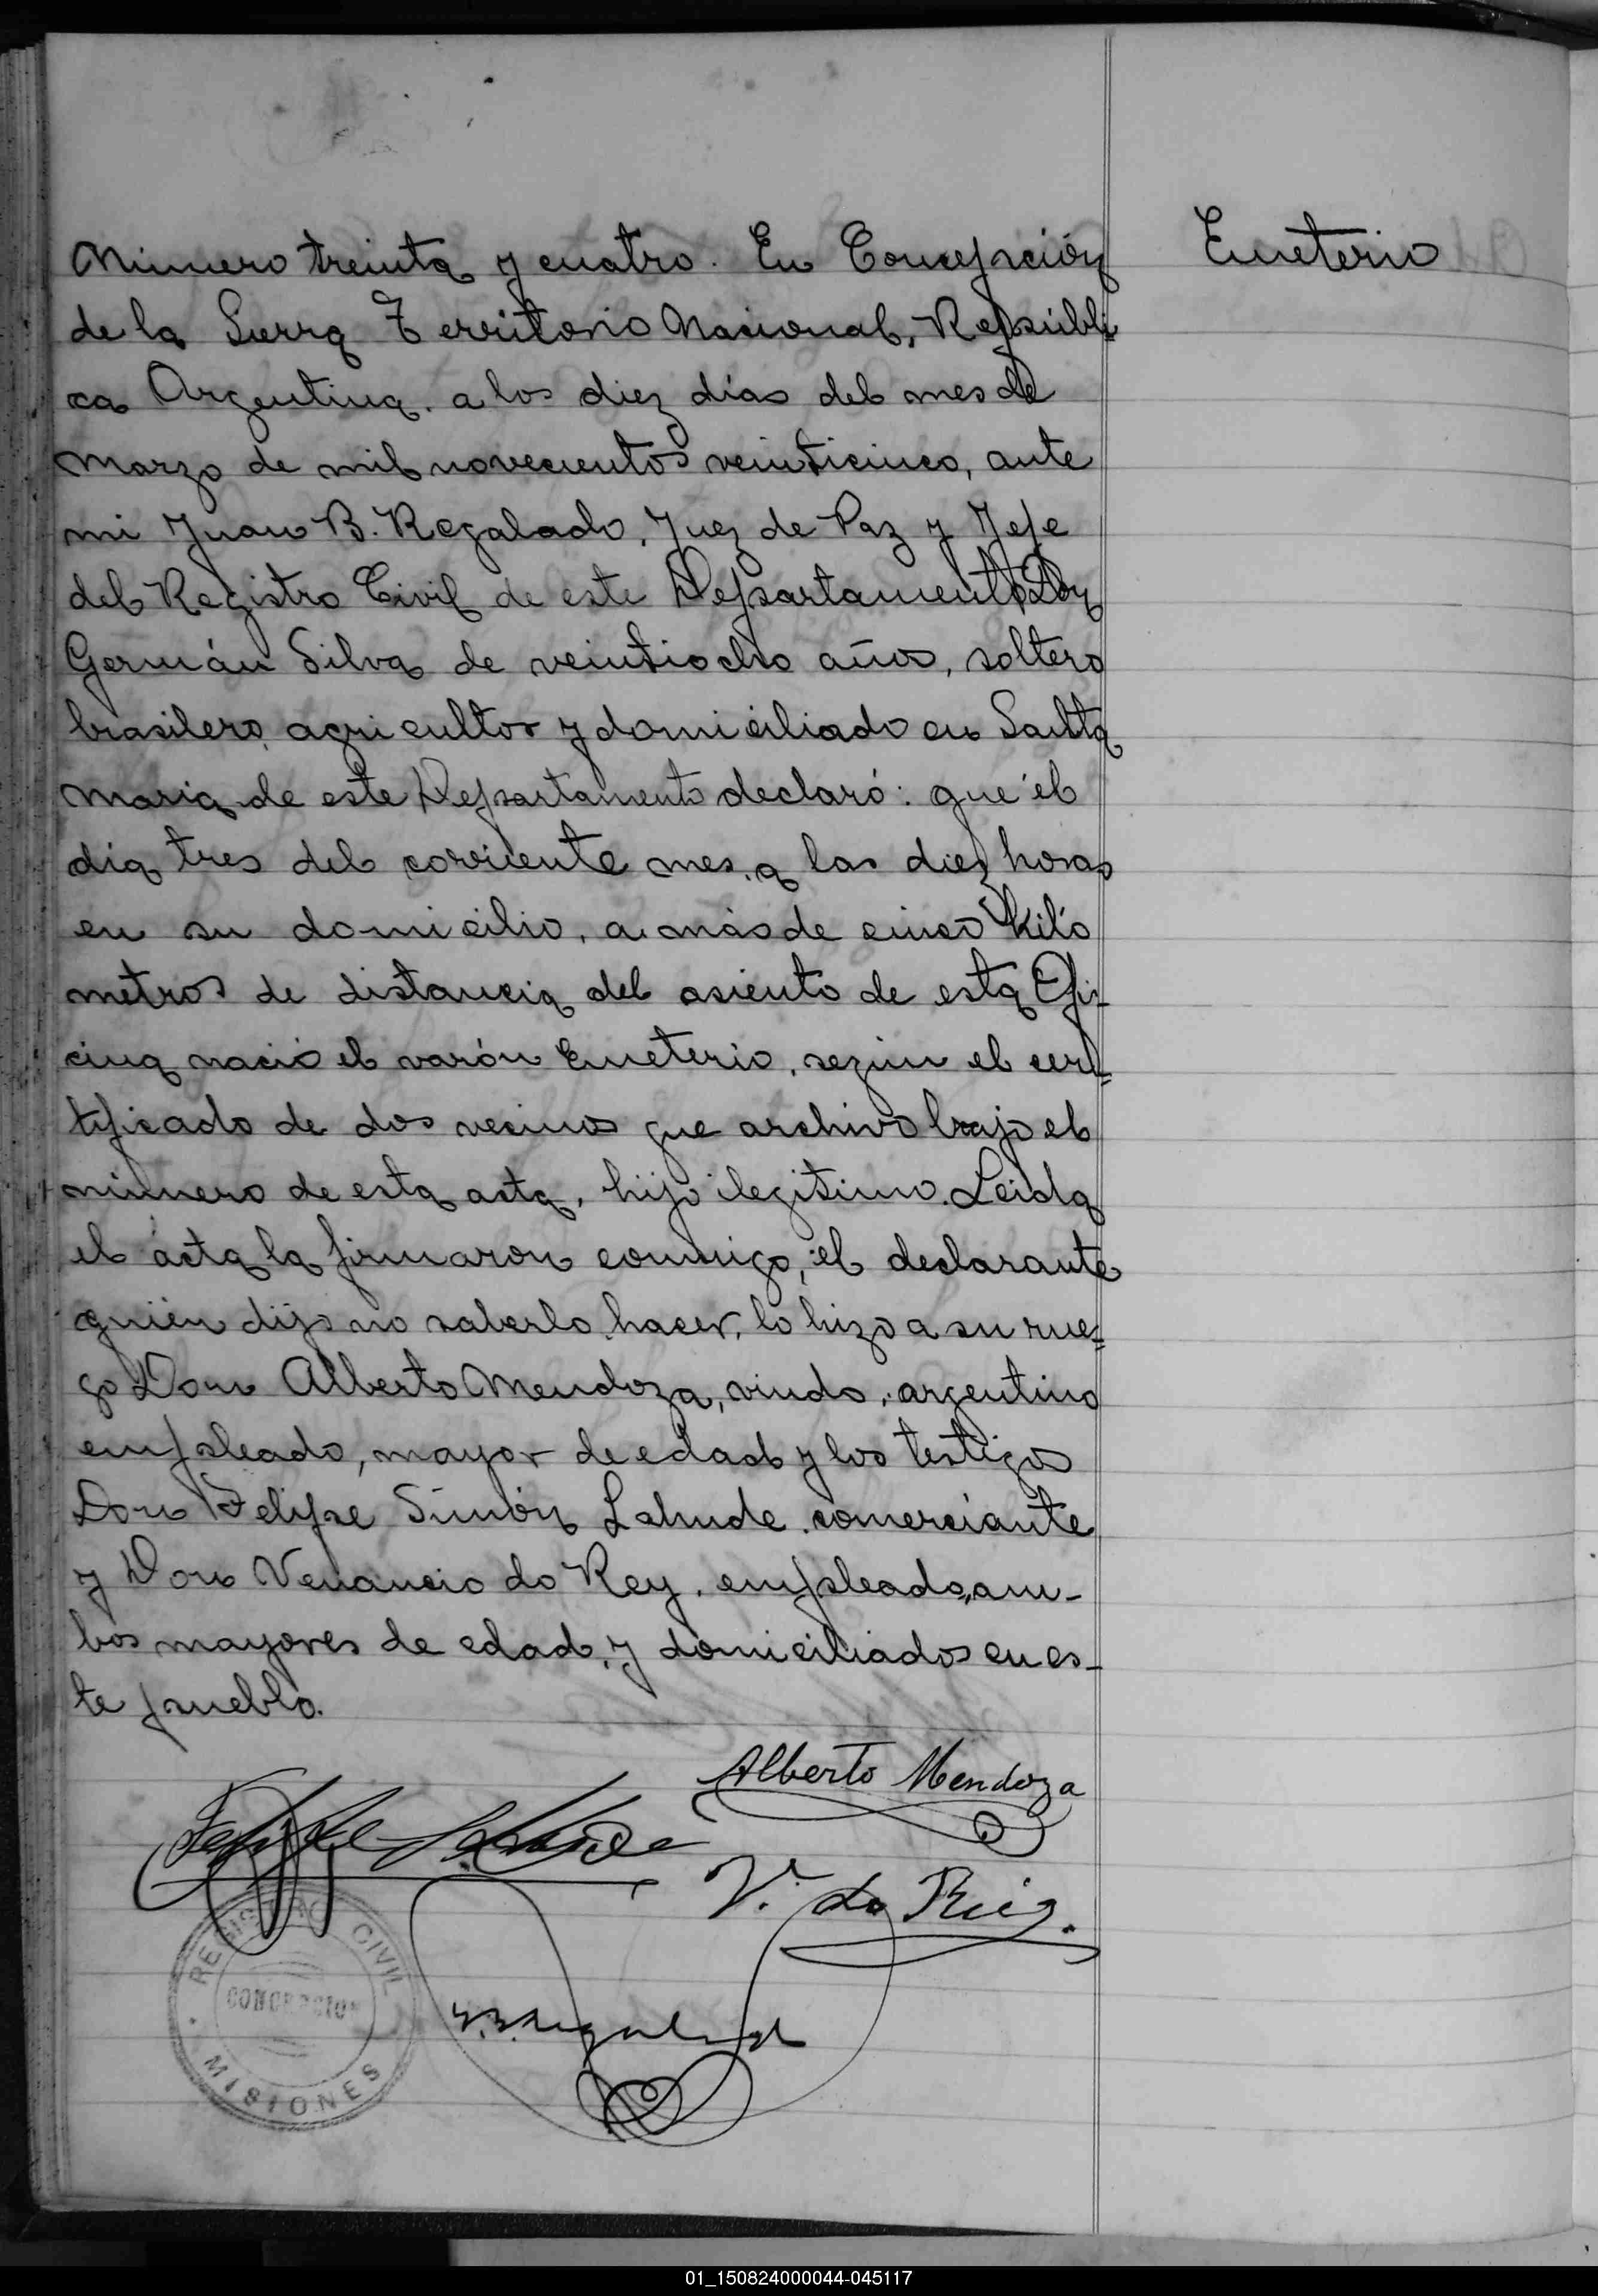 Número treinta y cuatro. En Concepción
Emeterio
de la Sierra Territorio Nacional, Repúbli-
ca Argentina. a los diez días del mes de
Marzo de mil novecientos veinticinco, ante
mi Juan B. Regalado, Juez de Paz y Jefe
del Registro Civil de este Departamento Don
Germán Silva de veintiocho años, soltero
brasilero, agricultor y domiciliado en Santa
Maria de este Departamento declaró: que él
dia tres del corriente mes, a las diez horas
en su domicilio, a más de cinco kiló
metros de distancia del asiento de esta Ofi-
cina nació el varón Emeterio, según el cer-
tificado de dos vecinos que archivo bajo el
número de esta acta, hijo ilegitimo. Leida
el acta la firmaron conmigo, él declarante
quién dijo no saberlo hacer, lo hizo a su rue-
go Don Alberto Mendoza, viudo, argentino
empleado, mayor de edad y los testigos
Don Felipe Simón Lahude, comerciante
y Don Venancio do Rey, empleado, am-
bos mayores de edad, y domiciliados en es-
te pueblo.
Alberto Mendoza
Felipe Lahude
V. do Rey.
REGISTRO CIVIL
CONCEPCION
MISIONES
J.B. Regalado
01_150824000044-045117